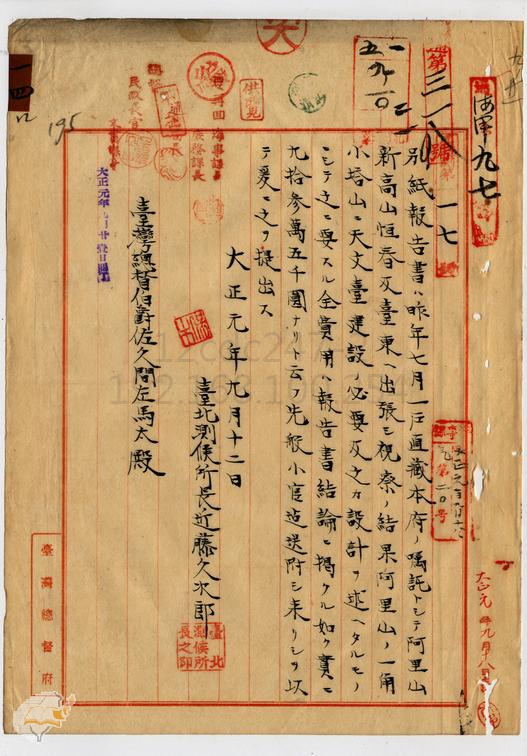 別紙報告書ハ昨年七月一戸直藏本府ノ囑託トシテ阿里山
新高山恒春及臺東ヘ出張シ視察ノ結果阿里山ノ一角
小塔山ニ天文臺建設ノ必要及之カ設計ヲ述ヘタルモノ
ニシテ之ニ要スル全費用ハ報告書結論ニ掲クル如ク實ニ
九拾參萬五千圓ナリト云フ先般小官迠送附シ来リシヲ以
テ爰ニ之ヲ提出ス
大正元年九月十二日
臺北測候所長近藤久次郎
臺北測候所長之印
臺灣總督伯爵佐久間左馬太殿
臺灣總督府
九七
一七
第三一八
號
一九五
民政長官
庶務課長
大正元年九月十八日